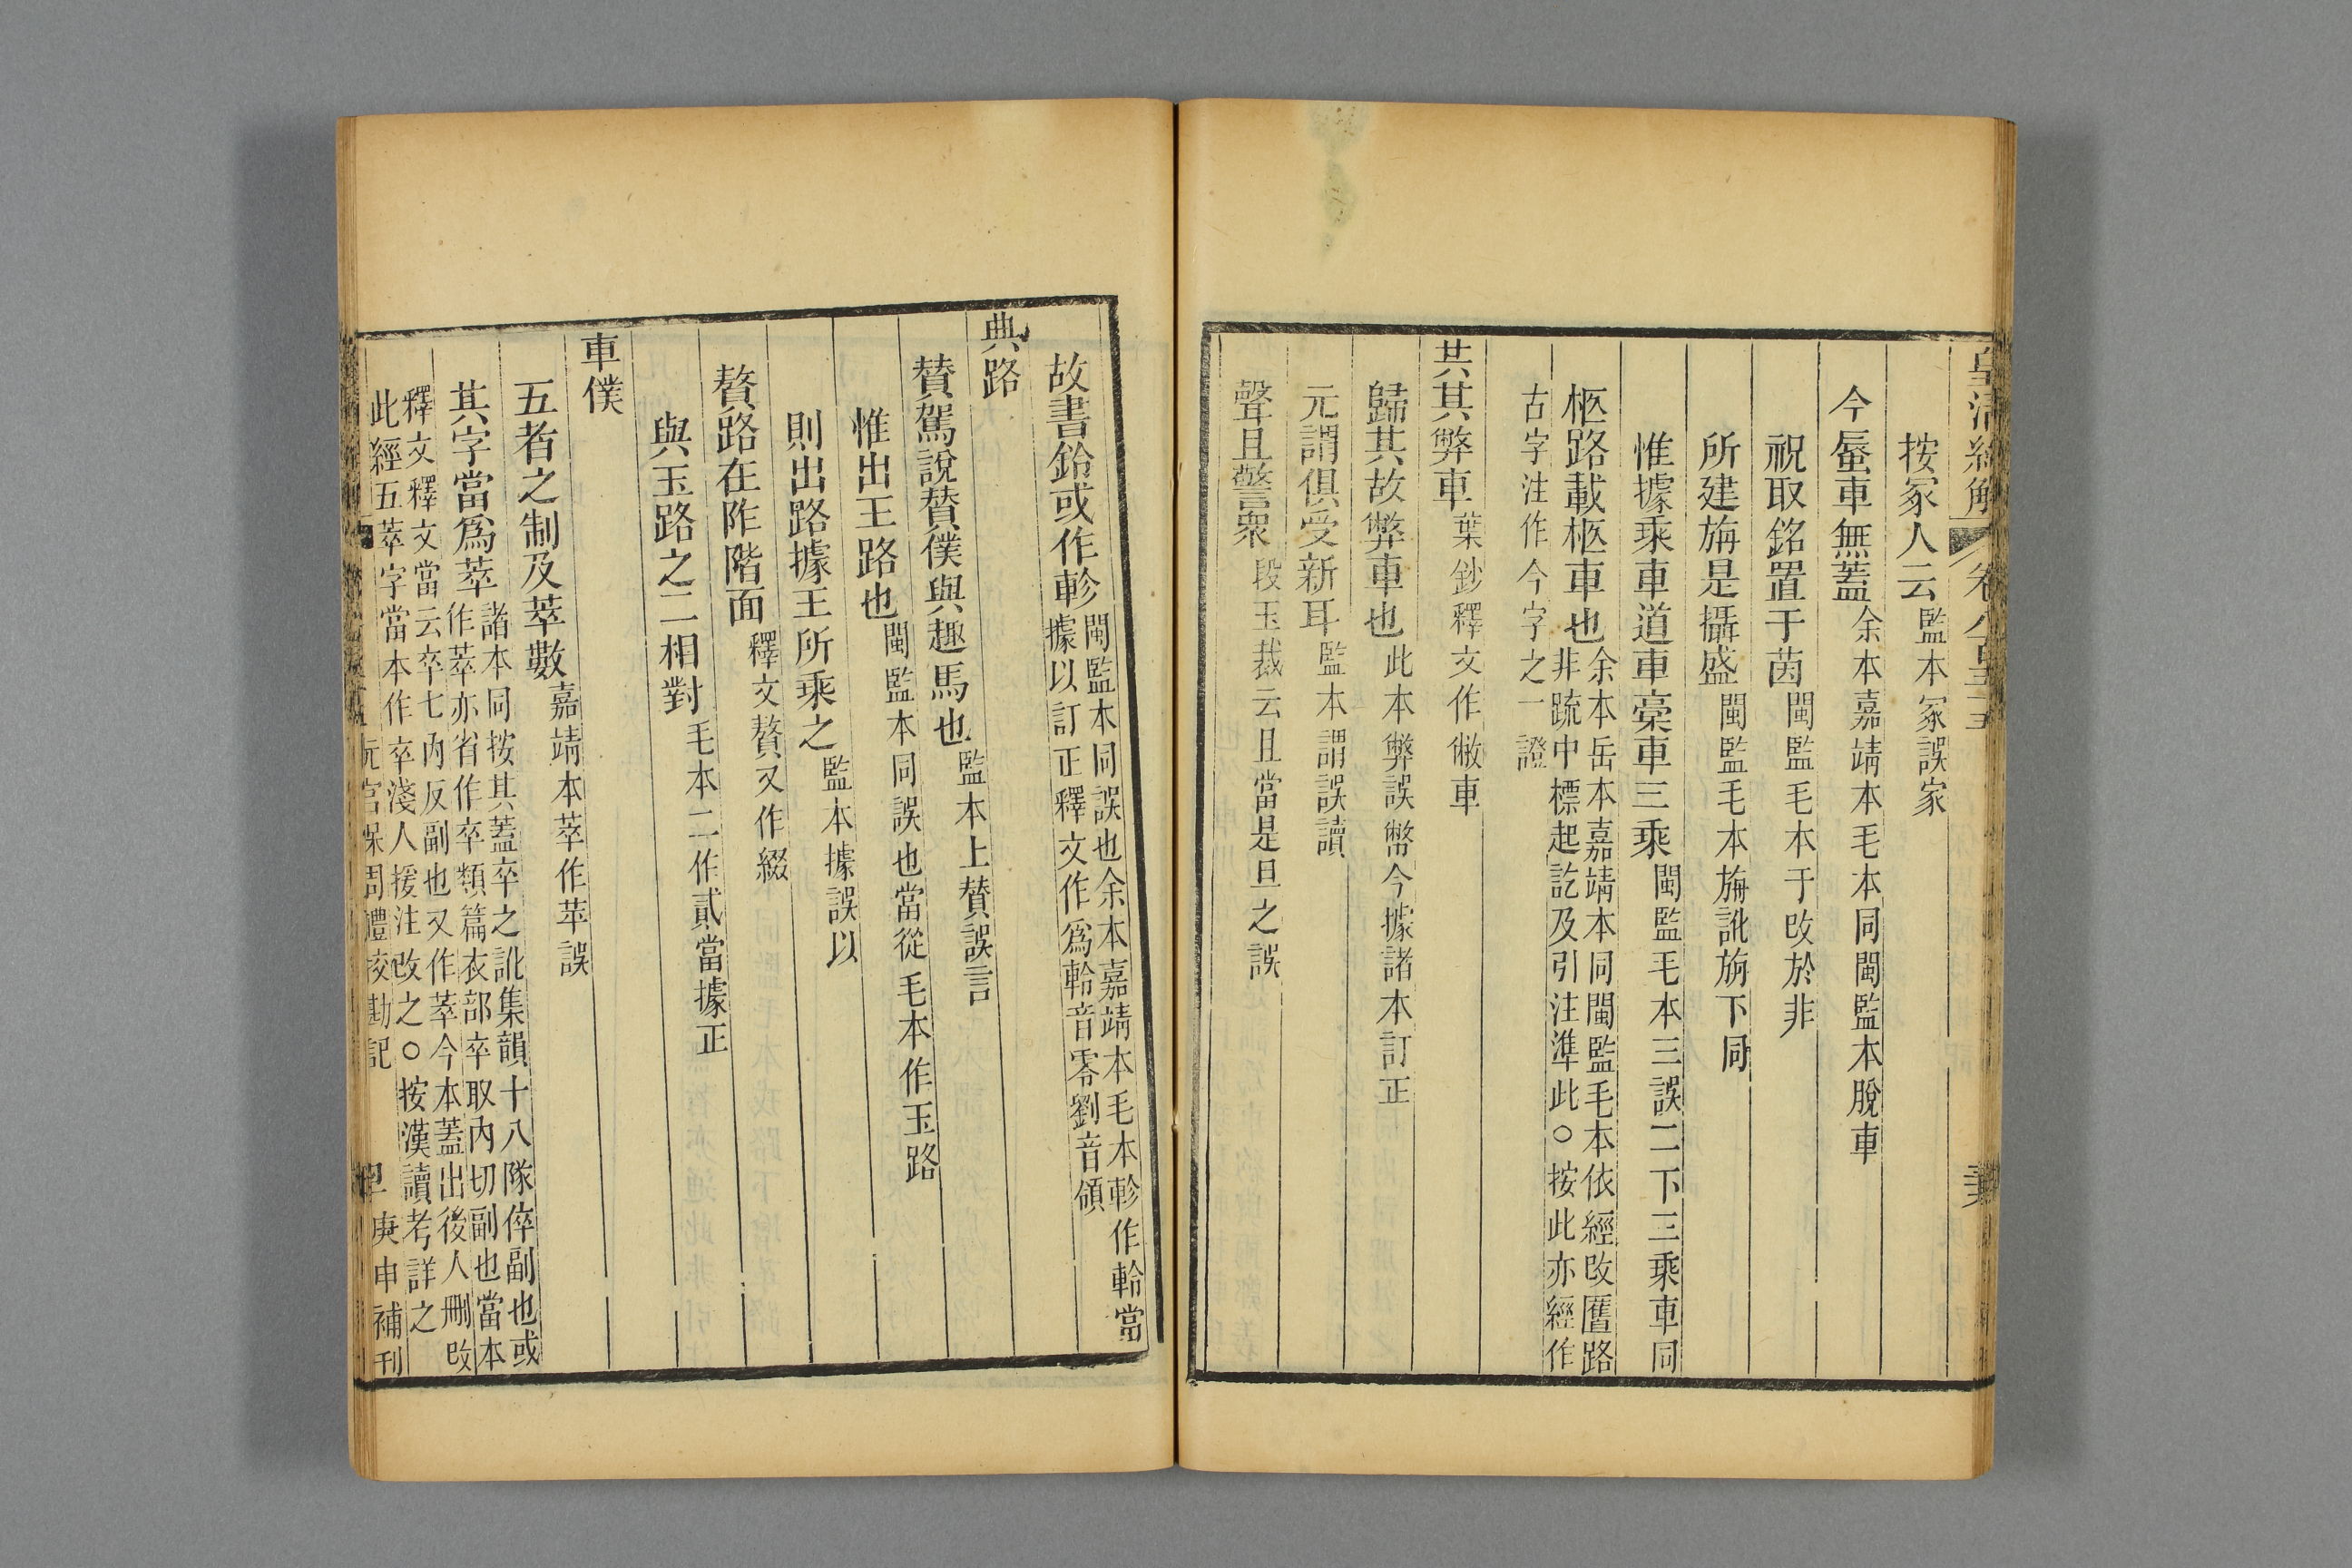 皇清經解
按冡人云監本冡誤家
今蜃車無蓋余本嘉靖本毛本同閩監本脫車
祝取銘置于茵閩監毛本于改於非
所建旃是攝盛閩監毛本旃訛旃下同
惟據乘車道車槀車三乘閩監毛本三誤二下三乘車同
柩路載柩車也余本岳本嘉靖本同閩監毛本依經改匶路
非疏中標起訖及引注準此○按此亦經作
古字注作今字之一證
共其弊車葉鈔釋文作㡀車
歸其故弊車也此本弊誤幣今據諸本訂正
元謂俱受新耳監本謂誤讀
聲且警衆段玉裁云且當是旦之誤
故書鈴或作軫閩監本同誤也余本嘉靖本毛本軫作軨當
據以訂正釋文作爲軨音零劉音領
典路
贊駕說贊僕與趣馬也監本上贊誤言
惟出王路也閩監本同誤也當從毛本作玉路
則出路據王所乘之監本據誤以
贅路在阼階面釋文贅又作綴
與玉路之二相對毛本二作貳當據正
車僕
五者之制及萃數嘉靖本萃作苹誤
其字當爲萃諸本同按其蓋卒之訛集韻十八隊倅副也或
作萃亦省作卒類篇衣部卒取內切副也當本
釋文釋文當云卒七內反副也又作萃今本蓋出後人刪改
此經五萃字當本作卒淺人援注改之○按漢讀考詳之
阮宮保周禮校勘記
庚申補刊